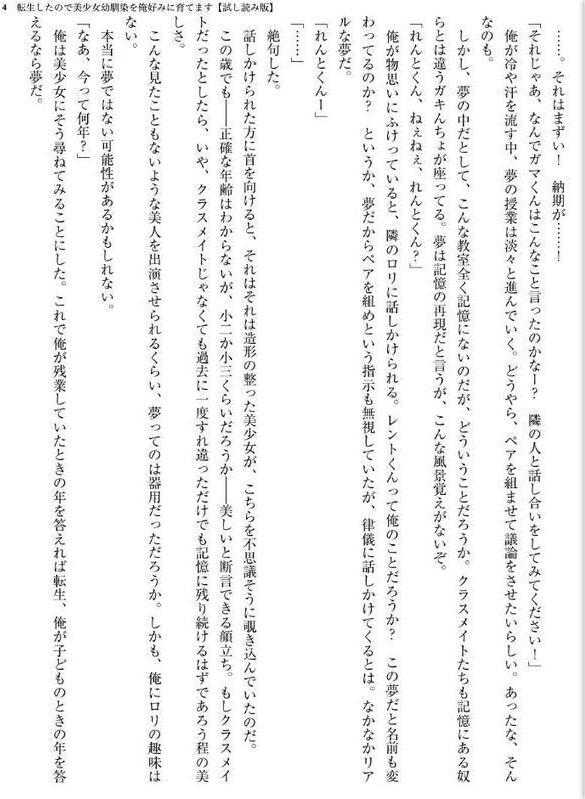 4　転生したので美少女幼馴染を俺好みに育てます【試し読み版】
「……。それはまずい！　納期が……！
「それじゃあ、なんでガマくんはこんなこと言ったのかなー？　隣の人と話し合いをしてみてください！」
　俺が冷や汗を流す中、夢の授業は淡々と進んでいく。どうやら、ペアを組ませて議論をさせたいらしい。あったな、そん
なのも。
　しかし、夢の中だとして、こんな教室全く記憶にないのだが、どういうことだろうか。クラスメイトたちも記憶にある奴
らとは違うガキんちょが座ってる。夢は記憶の再現だと言うが、こんな風景覚えがないぞ。
「れんとくん、ねぇねぇ、れんとくん？」
　俺が物思いにふけっていると、隣のロリに話しかけられる。レントくんって俺のことだろうか？　この夢だと名前も変
わってるのか？　というか、夢だからペアを組めという指示も無視していたが、律儀に話しかけてくるとは。なかなかリア
ルな夢だ。
「れんとくんー」
「……」
　絶句した。
　話しかけられた方に首を向けると、それはそれは造形の整った美少女が、こちらを不思議そうに覗き込んでいたのだ。
　この歳でも――正確な年齢はわからないが、小二か小三くらいだろうか――美しいと断言できる顔立ち。もしクラスメイ
トだったとしたら、いや、クラスメイトじゃなくても過去に一度すれ違っただけでも記憶に残り続けるはずであろう程の美
しさ。
　こんな見たこともないような美人を出演させられるくらい、夢ってのは器用だっただろうか。しかも、俺にロリの趣味は
ない。
　本当に夢ではない可能性があるかもしれない。
「なあ、今って何年？」
　俺は美少女にそう尋ねてみることにした。これで俺が残業していたときの年を答えれば転生、俺が子どものときの年を答
えるなら夢だ。